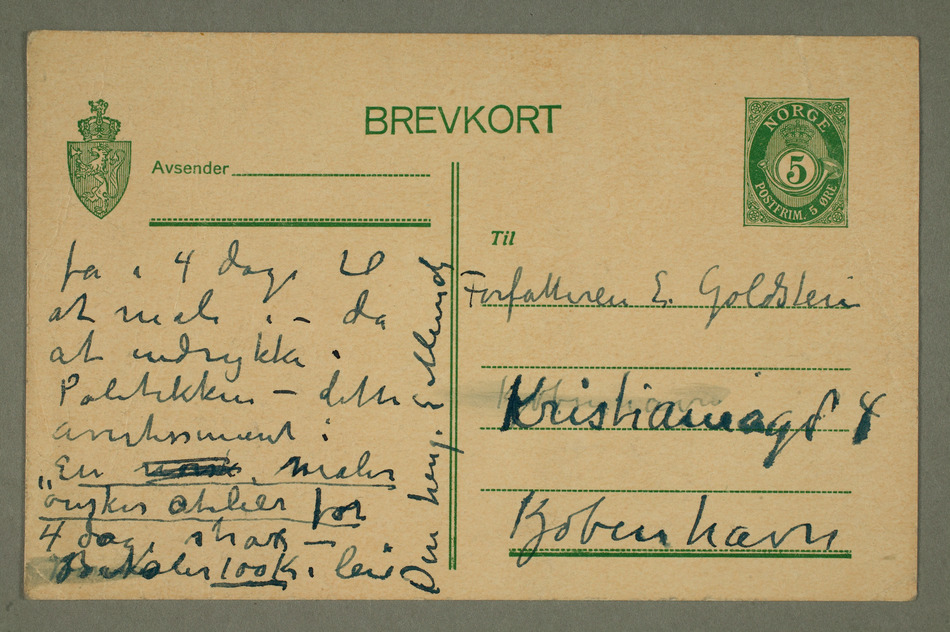 BREVKORT
NORGE
5
POSTFRIM. 5 ØRE
Avsender
Til
for 4 dage til
at male i – da
at indrykke i
Politikken – dette
avertissement :
„En maler
ønsker atelier for
4 dage strax –
Betaler 100 K i leie
Din heng. E Munch
Forfatteren E. Goldstein
Kristianiagd 4
Kobenhavn